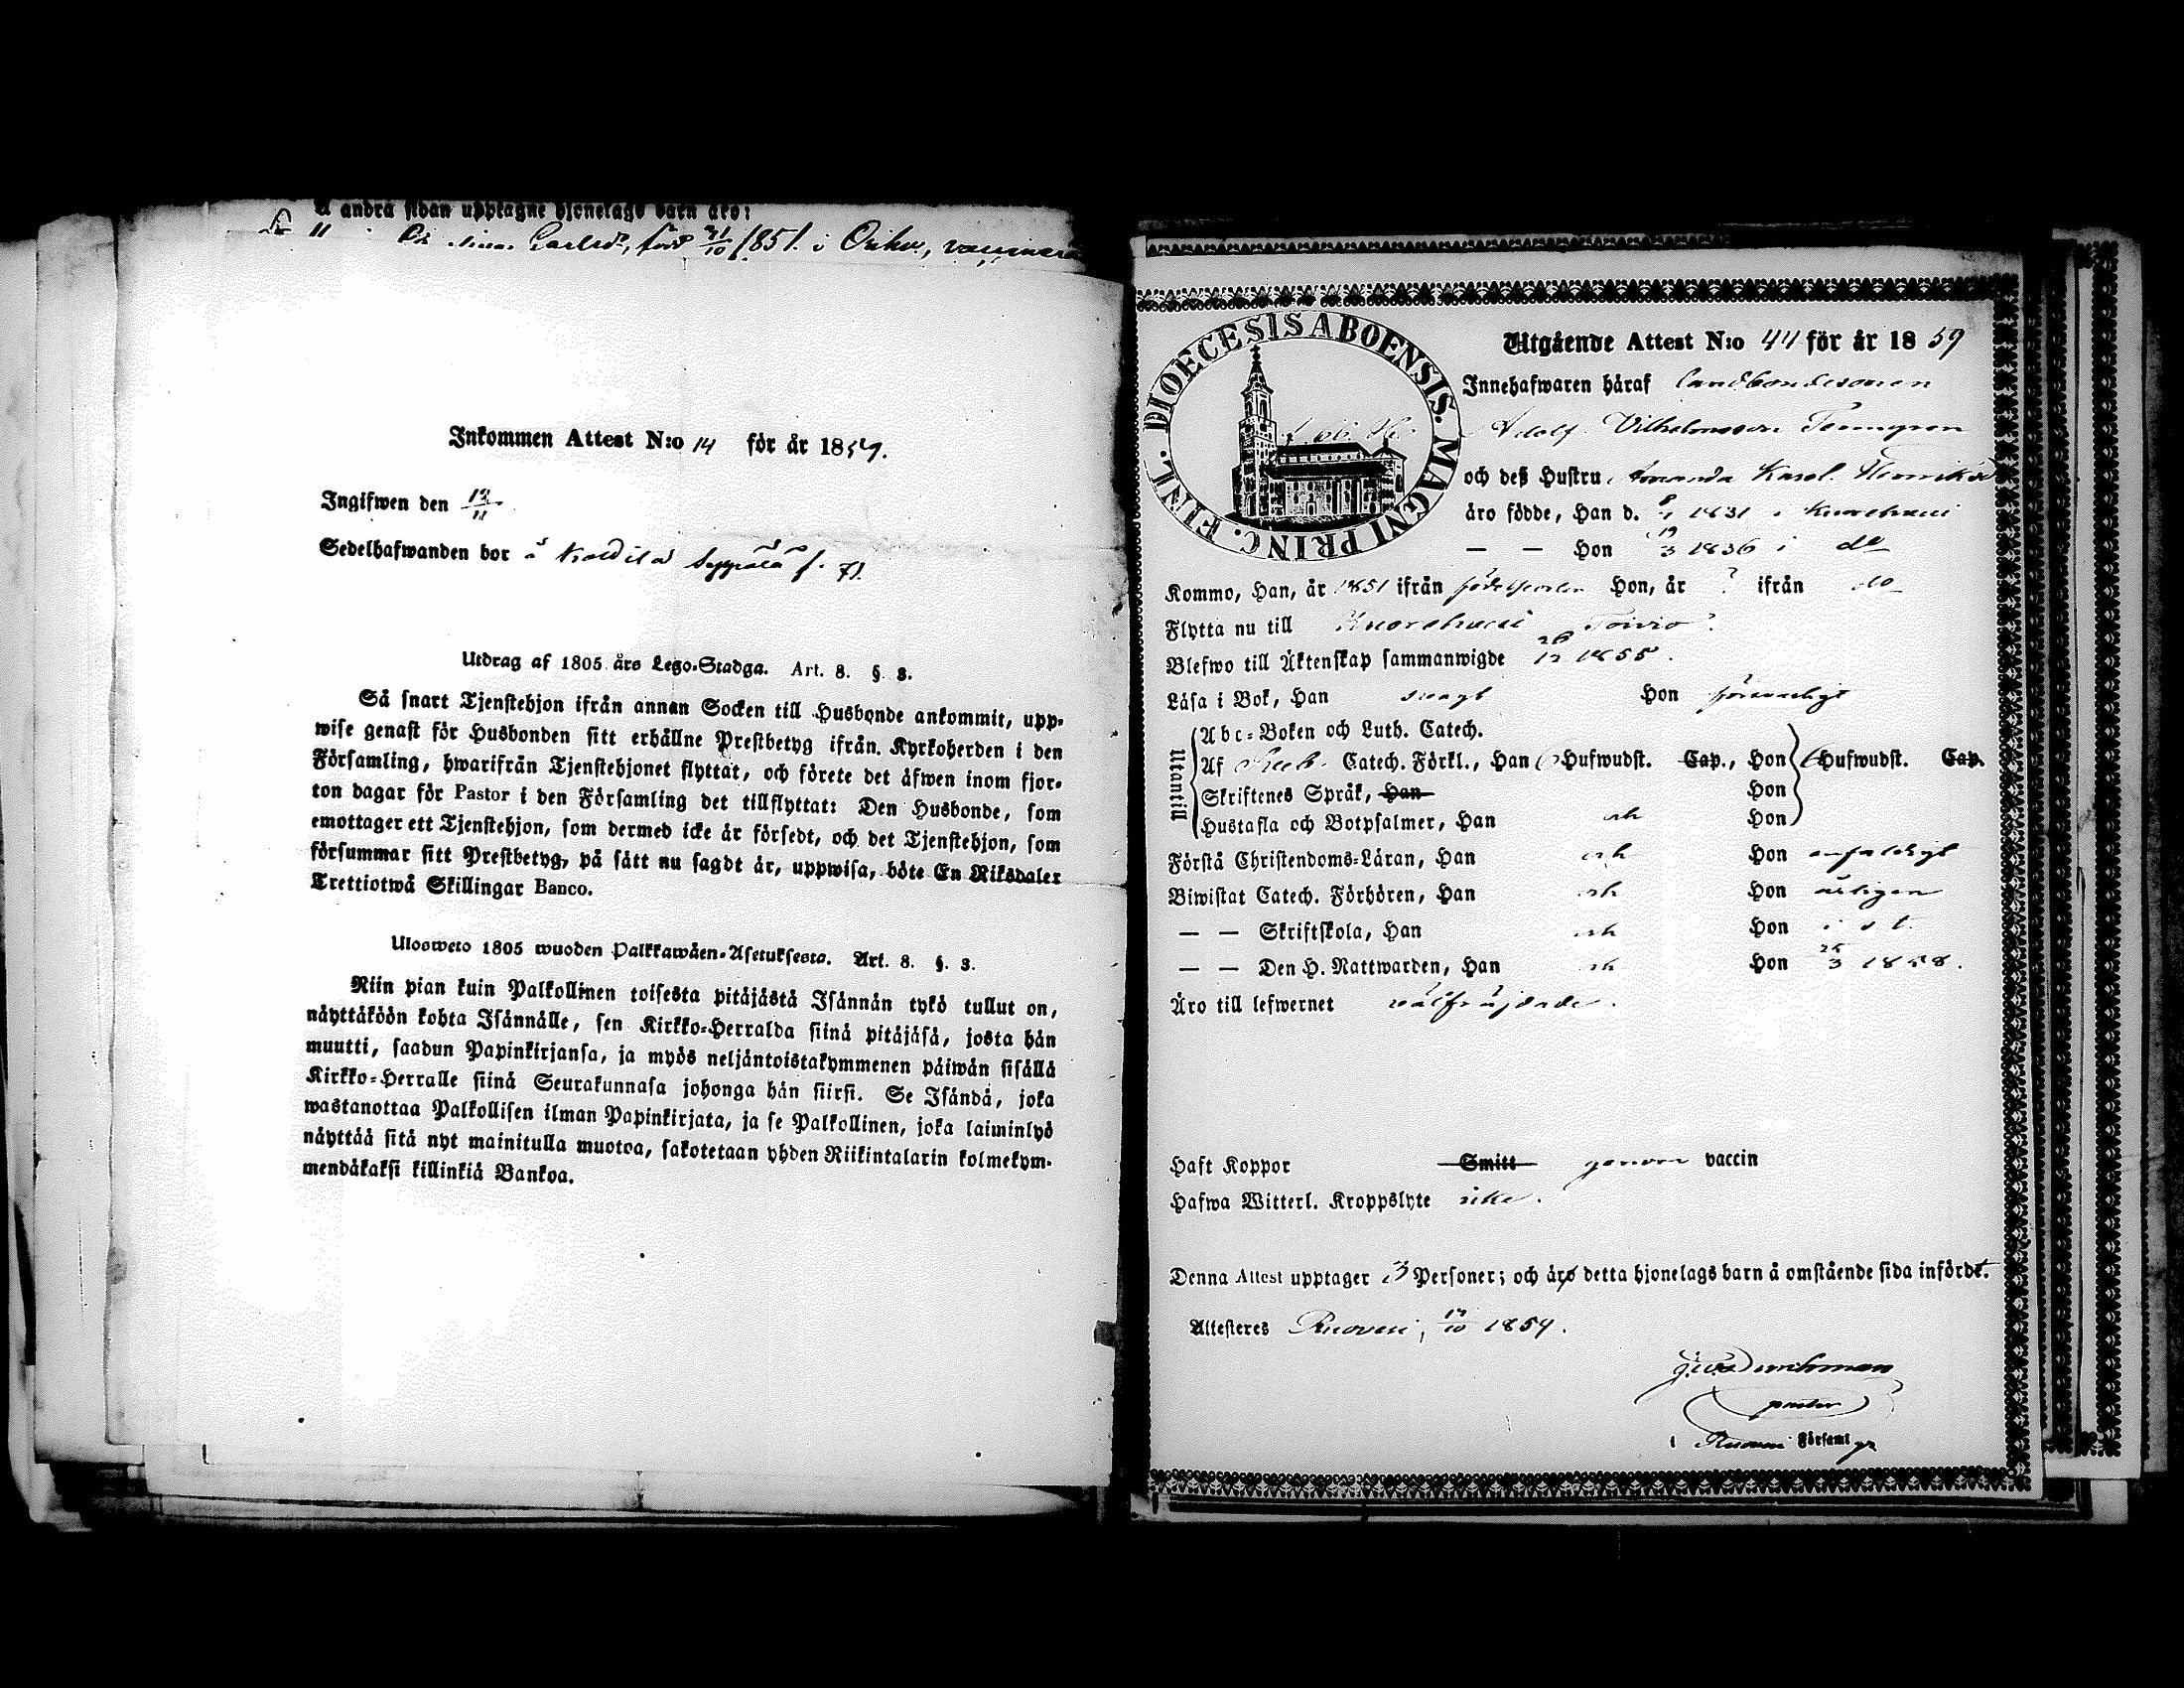 Å andra sidan upptagne hjonelags barn äro:
Carlsdr, född 31/10 1851. i Orihv., vaccinerad
Inkommen Attest N:o 14 för år 1859.
Ingifwen den 12/11
Sedelhafwanden bor å Koldila Seppälä
Utdrag af 1805 års Lego-Stadga. Art. 8. §. 3.
Så snart Tjenstehjon ifrån annan Socken till Husbonde ankommit, upp-
wise genast för Husbonden sitt erhållne Prestbetyg ifrån Kyrkoherden i den
Församling, hwarifrån Tjenstehjonet flyttat, och förete det äfwen inom fjor-
ton dagar för Pastor i den Församling det tillflyttat: Den Husbonde, som
emottager ett Tjenstehjon, som dermed icke är försedt, och det Tjenstehjon, som
försummar sitt Prestbetyg, på sätt nu sagdt är, uppwisa, böte En Riksdaler
Trettiotwå Skillingar Banco.
Ulosweto 1805 wuoden Palkkawäen-Asetuksesta. Art. 8. §. 3.
Niin pian kuin Palkollinen toisesta pitäjästä Isännän tykö tullut on,
näyttäköön kohta Isännälle, sen Kirkko-Herralda siinä pitäjäsä, josta hän
muutti, saadun Papinkirjansa, ja myös neljäntoistakymmenen päiwän sisällä
Kirkko-Herralle siinä Seurakunnasa johonga hän siirsi. Se Isändä, joka
wastanottaa Palkollisen ilman Papinkirjata, ja se Palkollinen, joka laiminlyö
näyttää sitä nyt mainitulla muotoa, sakotetaan yhden Riikintalarin kolmekym-
mendäkaksi killinkiä Bankoa.
DIOECESIS ABOENSIS. MAGNI PRINC. FINL.
Utgående Attest N:o 44 för år 1859
Innehafwaren häraf landbondesonen
Adolf Vilhelmsson Tenngren
och deß Hustru Amanda Karol. Henriksd
äro födde, Han d. 8/1 1831 i Kuorehvesi
— — Hon 19/3 1836 i do
Kommo, Han, år 1851 ifrån födelseorten Hon, år ? ifrån do
Flytta nu till Kuorehvesi Toivio.
Blefwo till Äktenskap sammanwigde 26/12 1855.
Läsa i Bok, Han svagt Hon försvarligt
Utantill
Abc-Boken och Luth. Catech.
Af Catech. Förkl., Han 6 Hufwudst. Cap., Hon 6 Hufwudst. Cap.
Skriftenes Språk, Han Hon
Hustafla och Botpsalmer, Han och Hon
Förstå Christendoms-Läran, Han och Hon enfaldigt
Biwistat Catech. Förhören, Han och Hon årligen
— — Skriftskola, Han och Hon i s. t.
— — Den H. Nattwarden, Han och Hon 25/3 1858.
Äro till lefwernet välfräjdade.
Haft Koppor Smitt genom vaccin
Hafwa Witterl. Kroppslyte icke.
Denna Attest upptager 3 Personer; och är detta hjonelags barn å omstående sida infördt.
Attesteres Ruovesi, 17/10 1859.
pastor
i Ruovesi Församlg